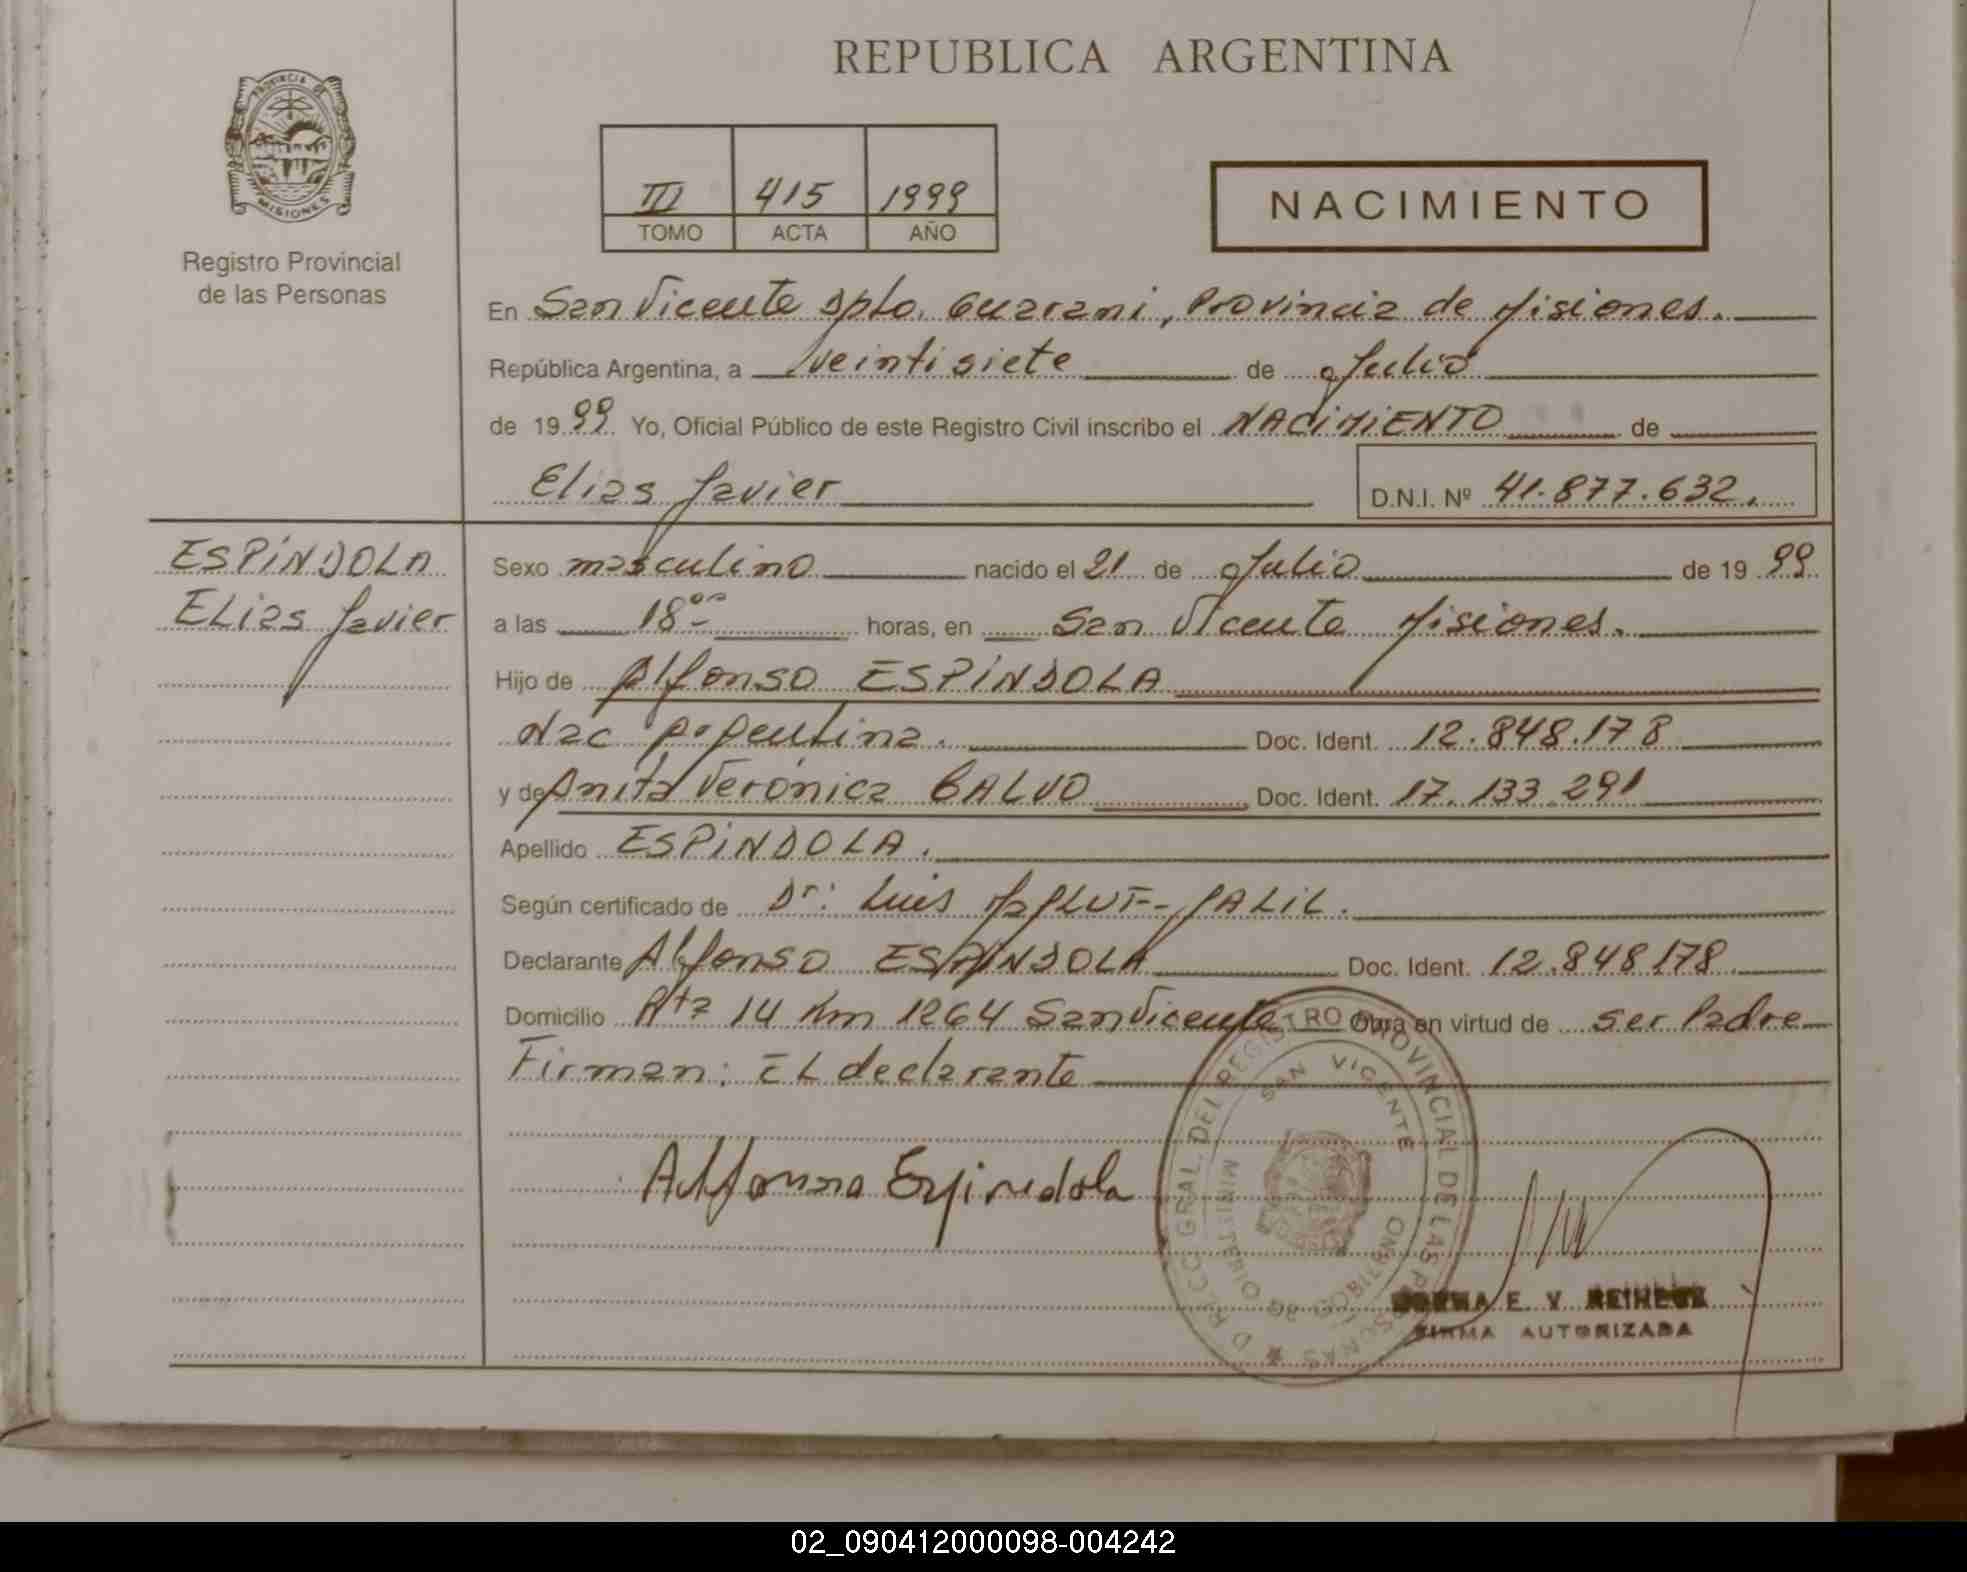 REPUBLICA ARGENTINA
PROVINCIA DE
MISIONES
Registro Provincial
de las Personas
III 415 1999
TOMO ACTA AÑO
NACIMIENTO
En San Vicente Dpto. Guarani, Provincia de Misiones.
República Argentina, a veintisiete de Julio
de 19 99 Yo, Oficial Público de este Registro Civil inscribo el NACIMIENTO de
Elias Javier D.N.I. Nº 41.877.632.
ESPINDOLA
Elias Javier
Sexo masculino nacido el 21 de Julio de 19 99
a las 18 oo horas, en San Vicente Misiones.
Hijo de Alfonso ESPINDOLA
Nac Argentina. Doc. Ident. 12.848.178
y de Anita Verónica CALVO Doc. Ident. 17.133.291
Apellido ESPINDOLA.
Según certificado de Dr: Luis JALIL.
Declarante Alfonso ESPINDOLA Doc. Ident. 12.848.178
Domicilio Rta 14 Km 1264 San Vicente Obra en virtud de ser Padre
Firman: El declarante
Alfonso Espindola
DIRECC. GRAL. DEL REGISTRO PROVINCIAL DE LAS PERSONAS
SAN VICENTE
MINISTERIO DE GOBIERNO
E. V.
FIRMA AUTORIZADA
02_090412000098-004242